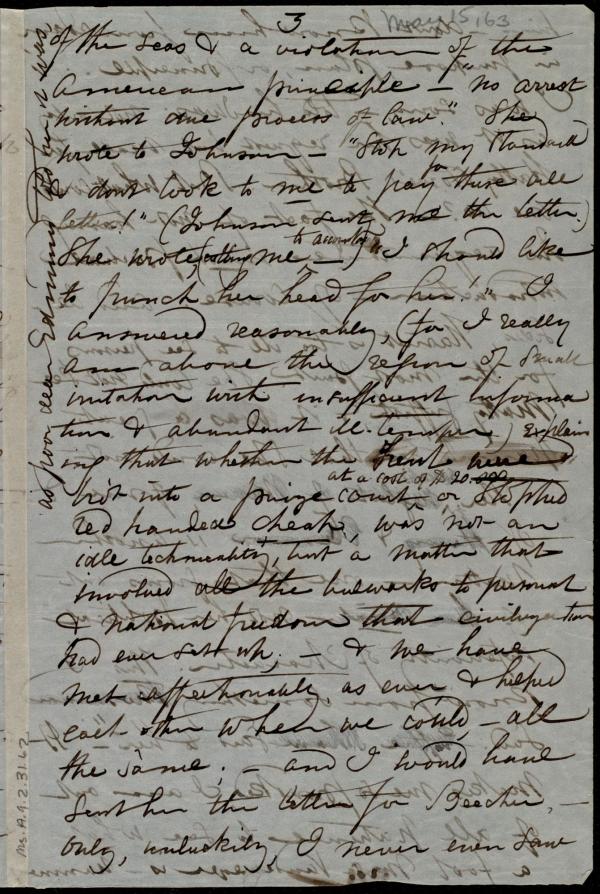 3
May 15, 63
of the seas & a violation of the
American principle – "no arrest
without due process of law." She
wrote to Johnson – "Stop my Standard
& dont look to me to pay for those old
letters!" (Johnson sent me the letter.)
She wrote, (calling me, – ) "I should like
to punch her head for her!" I
answered reasonably, (for I really
am above the region of small
irritation with insufficient informa
tion & abundant ill-temper,) explain
ing that whether the Trent were
at a cost of $20.000
bro't into a prize court or stopped
red handed cheap, was not an
idle technicality, but a matter that
involved all the bulwarks to personal
& national freedom that civilization
had ever set up; – & we have
met affectionately as ever & helped
each other when we could, – all
the same; – and I would have
sent her the letter for Beecher, –
only, unluckily, I never even saw
as poor dear Edmund
Ms. A.9.2.31.62